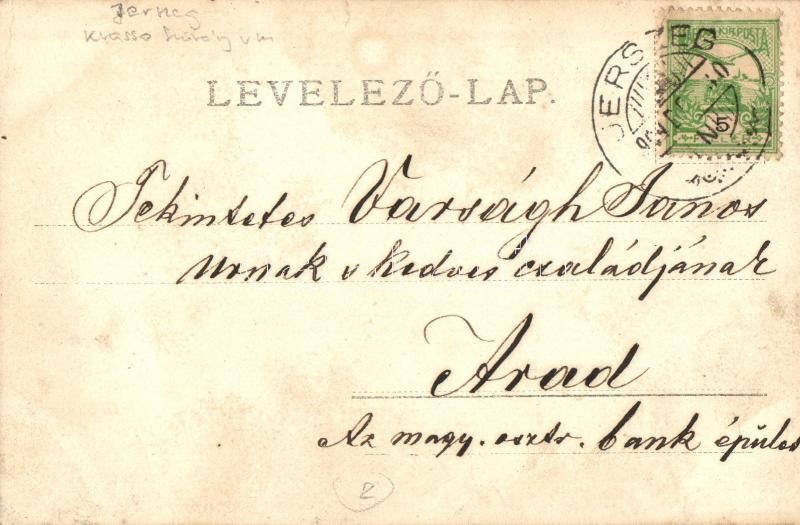 Jerszeg
Krassó Szörény vm
LEVELEZŐ-LAP.
JERSZEG
Tekintetes Varságh János
Urnak s kedves családjának
Arad
Az magy. osztr. bank épület
2